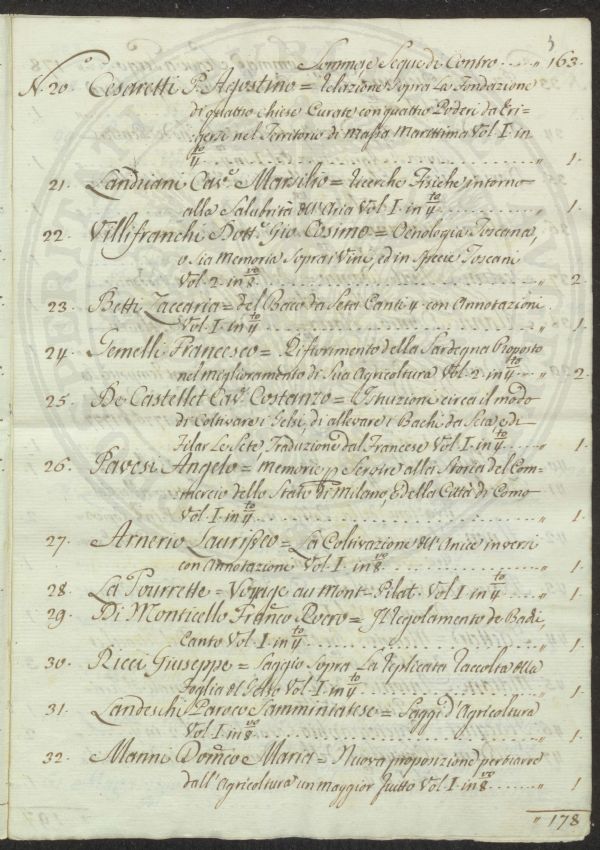 3
Sommae Segue di Contro ..... " 163.
N.° 20. Cesaretti P. Agostino = Relazione Sopra La Fondazione
di quattro chiese Curate con quattro Poderi da Eri-
gersi nel Territorio di Massa Marittima Vol. I. in
4.to ..... " 1.
21. Landriani Cav.e Marsilio = Ricerche Fisiche intorno
alla Salubrità dell'Aria Vol. I. in 4.to ..... " 1.
22. Villifranchi Dott.e Gio Cosimo = Oenologia Toscana,
o sia Memoria Sopra i Vini, ed in Specie Toscani
Vol. 2. in 8.vo ..... " 2
23. Betti Zaccaria = del Baco da Seta Canti 4. con Annotazioni
Vol. I. in 4.to ..... " 1.
24. Gemelli Francesco = Rifiorimento della Sardegna Proposto
nel miglioramento di Sua Agricoltura Vol. 2. in 4.to ..... " 2.
25. De Castellet Cav.e Costanzo = Istruzione circa il modo
di Coltivare i Gelsi, di allevare i Bachi da Seta e di
Filar Le Sete, Traduzione dal Francese Vol. I. in 4.to ..... " 1.
26. Pavesi Angelo = Memorie p Servire alla Storia del Com-
mercio dello Stato di Milano, e della Città di Como
Vol. I. in 4.to ..... " 1.
27. Arnerio Laurisseo = La Coltivazione dell'Anice in versi
con Annotazione Vol. I. in 8.vo ..... " 1.
28. La Tourrette = Voyage au Mont-Pilat. Vol. I. in 4.to ..... " 1.
29. Di Monticello Franc.o Rovero = Il Regolamento de Bachi,
Canto Vol. I. in 4.to ..... " 1.
30. Ricci Giuseppe = Saggio Sopra La Replicata Raccolta della
Foglia del Gelso Vol. I. in 4.to ..... " 1.
31. Landeschi Paroco Samminiatese = Saggi d'Agricoltura
Vol. I. in 8.vo ..... " 1.
32. Manni Dom.co Maria = Nuova proposizione per trarre
dall'Agricoltura un maggior frutto Vol. I. in 8.vo ..... " 1
" 178